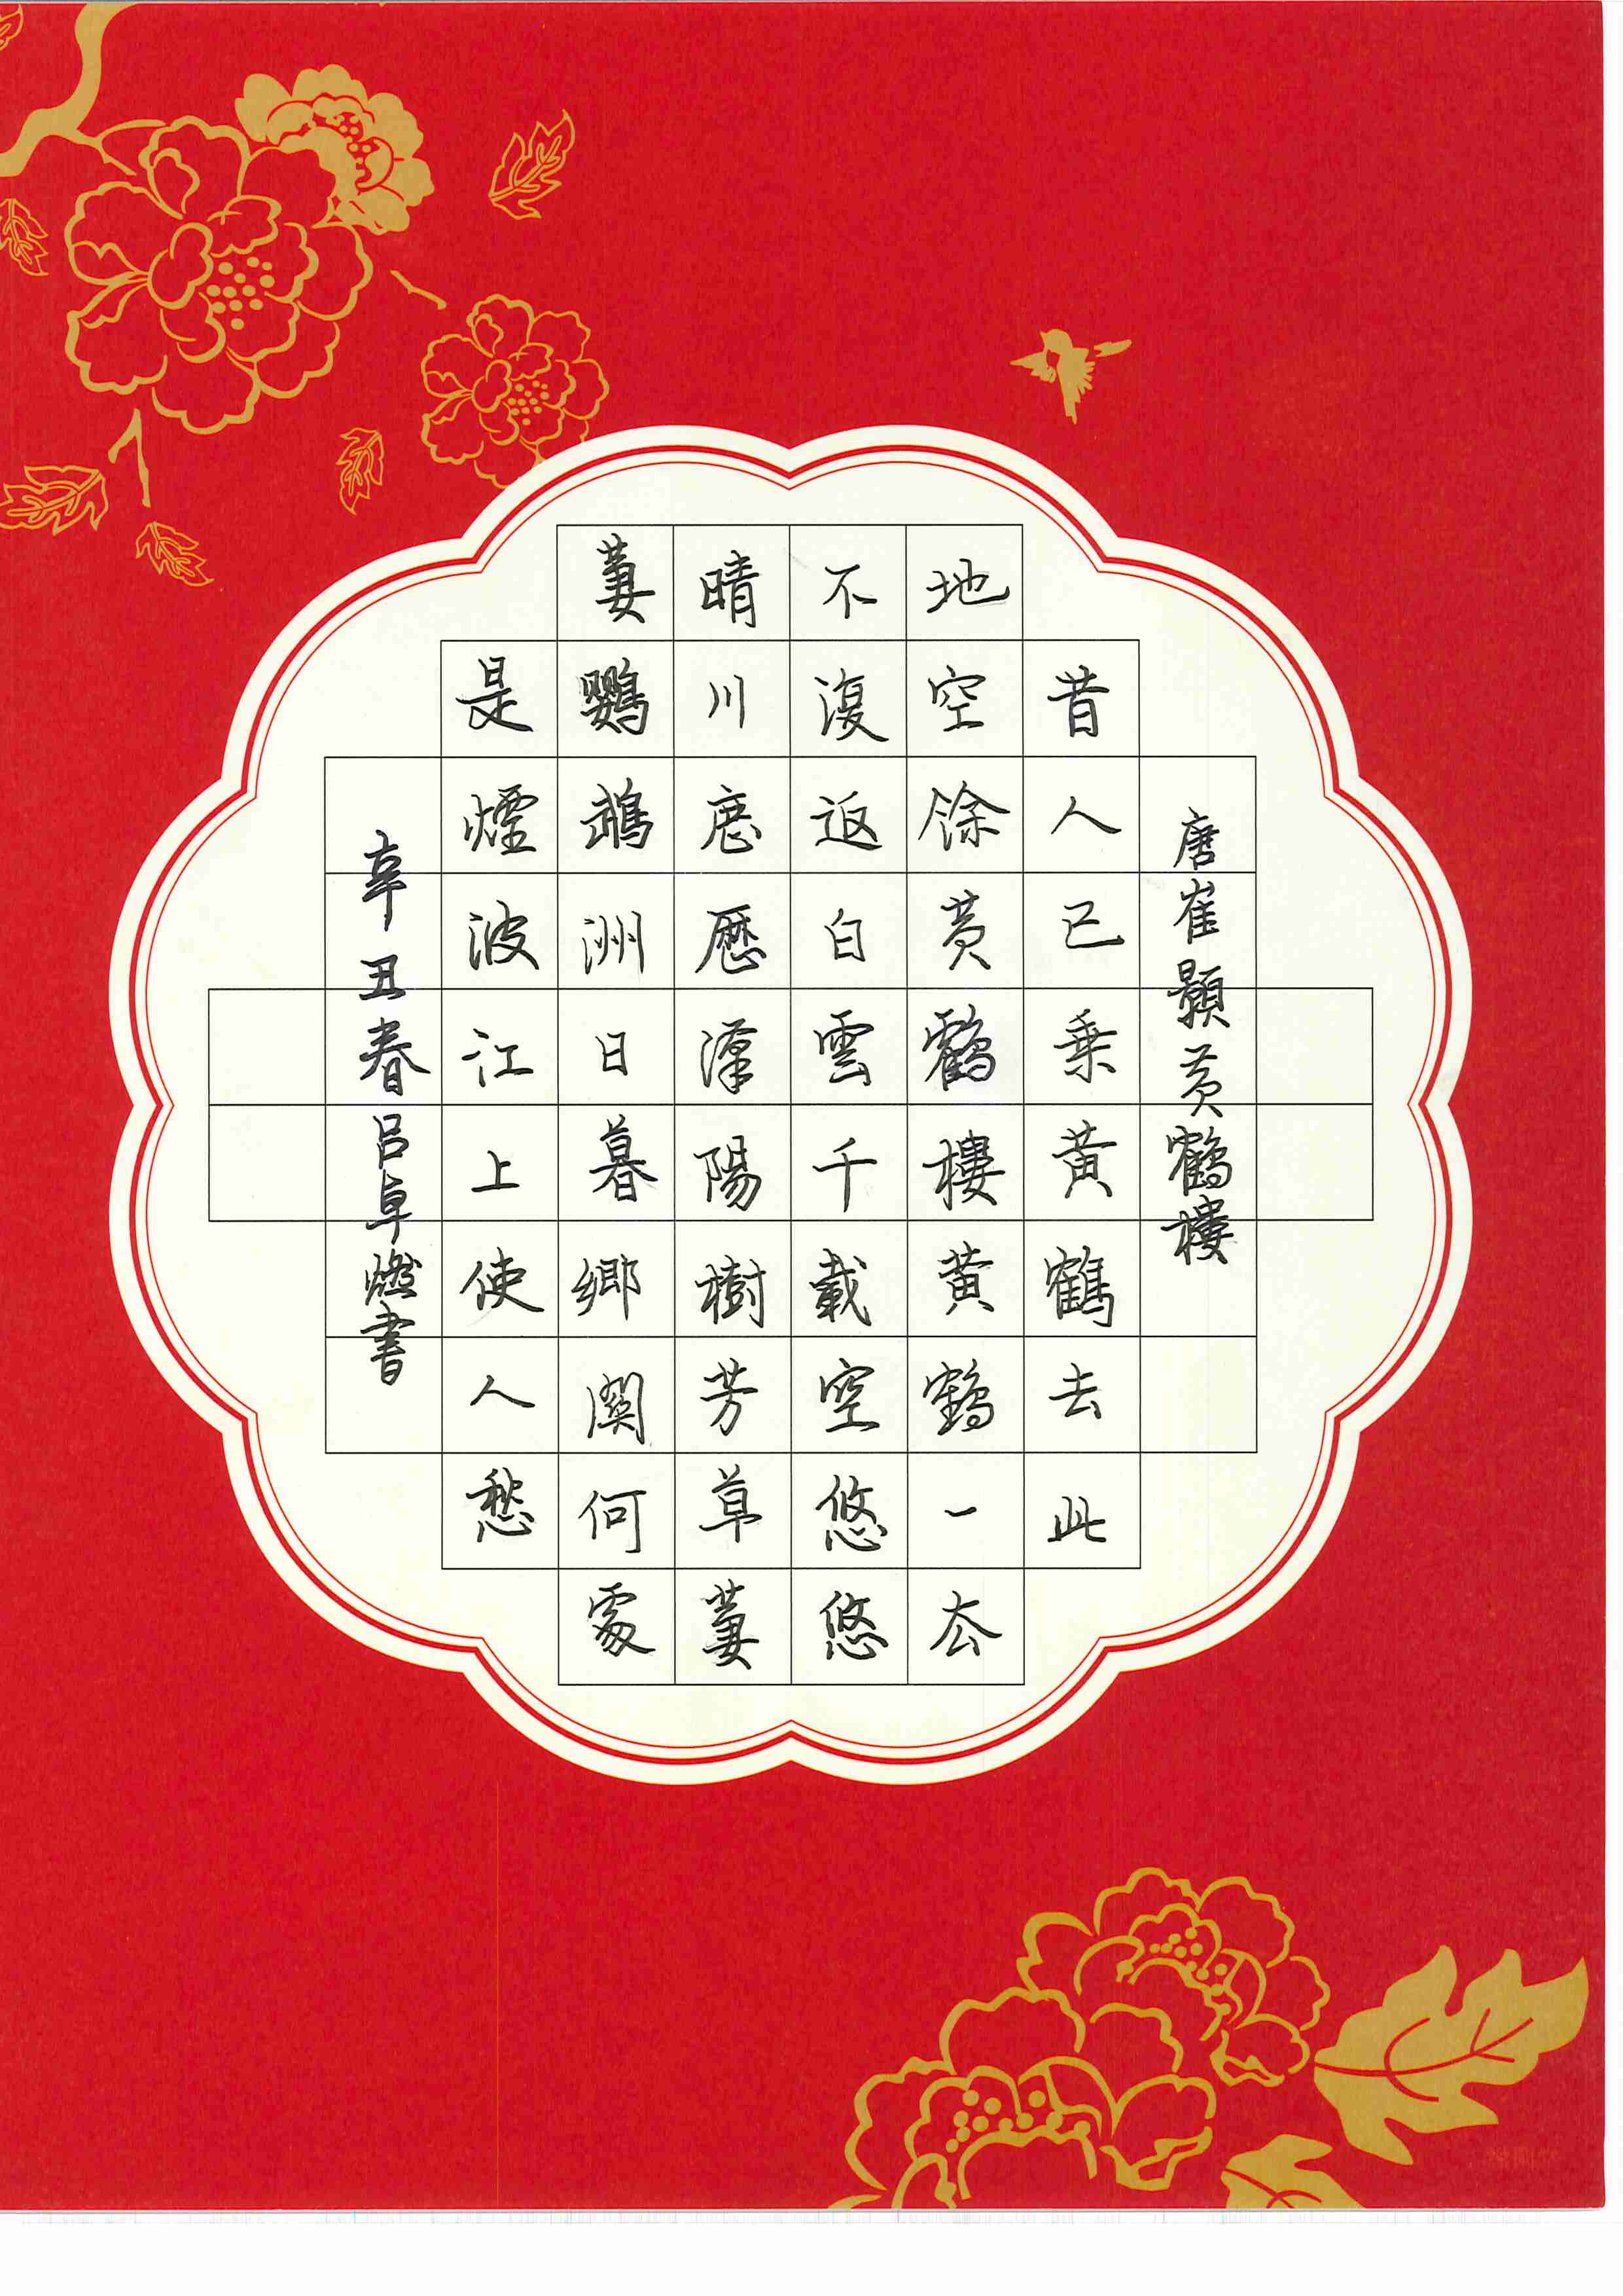 唐崔顥黃鶴樓
昔人已乘黃鶴去此
地空餘黃鶴樓黃鶴一去
不復返白雲千載空悠悠
晴川歷歷漢陽樹芳草萋
萋鸚鵡洲日暮鄉關何處
是煙波江上使人愁
辛丑春呂卓書